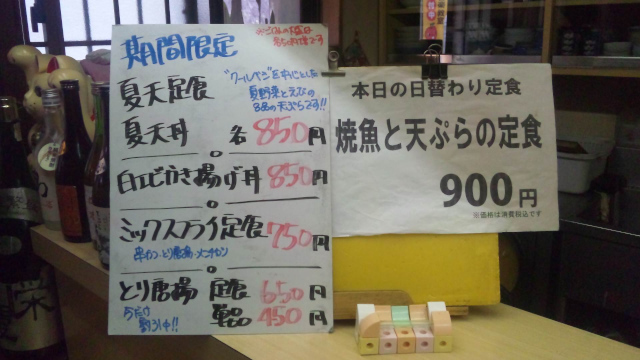 期間限定
夏天定食
"クールベジ"を中心とした
夏野菜とえびの
8品の天ぷらです!!
夏天丼 各850円
白エビかき揚げ丼 850円
ミックスフライ定食 750円
串カツ・とり唐揚・メンチカツ
とり唐揚 定食 650円
単品 450円
今だけ
割引中!!
本日の日替わり定食
焼魚と天ぷらの定食
900円
※価格は消費税込です